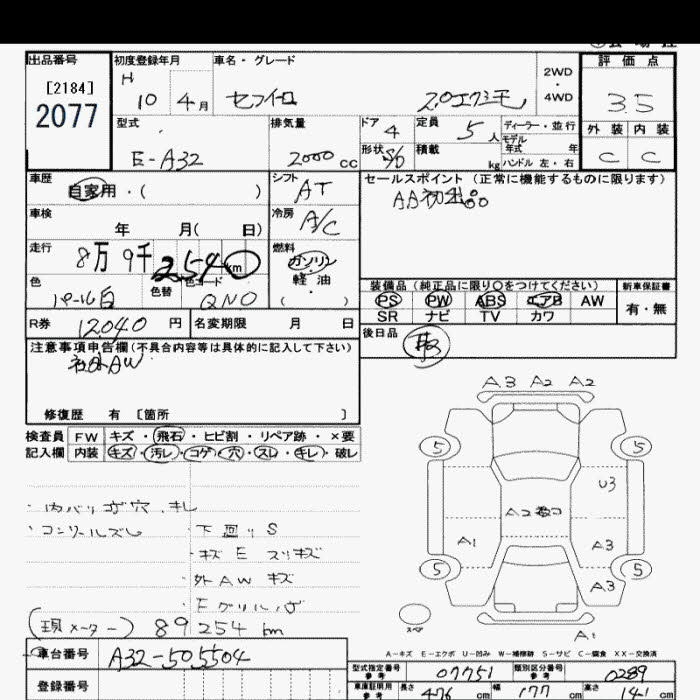 出品番号
[2184]
2077
初度登録年月
H
10 4月
車名・グレード
セフィーロ 2.0エクシモ
2WD
・
4WD
評価点
3.5
外装 内装
C C
型式
E-A32
排気量
2000cc
ドア
4
形状
S/D
定員
5人
積載
kg
ディーラー・並行
モデル
年式 年
ハンドル 左・右
車歴
自家用・( )
シフト
AT
セールスポイント (正常に機能するものに限ります)
AA初出品
車検
年 月( 日)
冷房
A/C
走行
8万9千254km
燃料
ガソリン
・
軽油
( )
色
パール白
色替
色コード
QN0
装備品 (純正品に限り○をつけてください)
PS PW ABS エアB AW
SR ナビ TV カワ
新車保証書
有・無
R券 12040円
名変期限 月 日
後日品
注意事項申告欄(不具合内容等は具体的に記入して下さい)
社外AW
修復歴 有 〔箇所 〕
検査員
記入欄
FW キズ・飛石・ヒビ割・リペア跡・×要
内装 キズ・汚レ・コゲ・穴・スレ・キレ・破レ
・内バリコゲ穴、キレ
・コンソールズレ
・下回リS
・キズ E スリキズ
・外AW キズ
・Fグリルハゲ
(現メーター) 89254km
A3 A2 A2
5 5
U3
A2
A1
A3
5 5
A3
A1
A-キズ E-エクボ U-凹み W-補修跡 S-サビ C-腐食 XX-交換済
車台番号 A32-505504
登録番号
型式指定番号
参考
07751
類別区分番号
参考
0289
車庫証明用
参考
長さ 476cm
幅 177cm
高さ 141cm